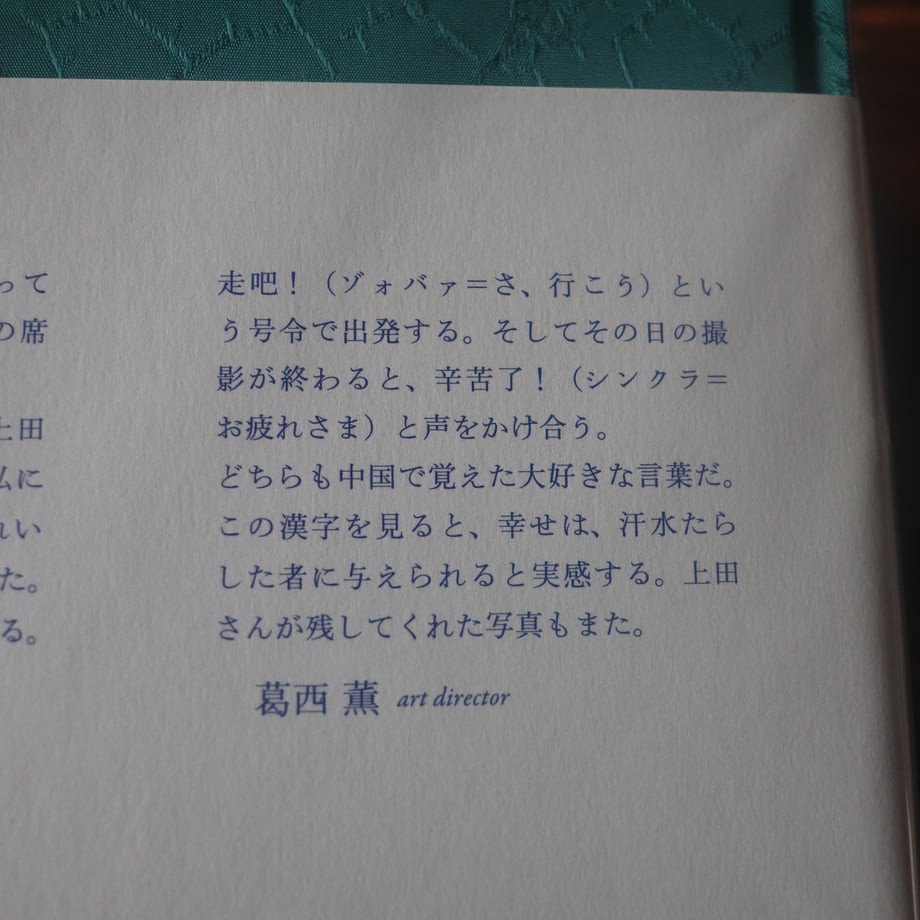 って
の席
上田
私に
れい
た。
る。
走吧！（ゾォバァ＝さ、行こう）とい
う号令で出発する。そしてその日の撮
影が終わると、辛苦了！（シンクラ＝
お疲れさま）と声をかけ合う。
どちらも中国で覚えた大好きな言葉だ。
この漢字を見ると、幸せは、汗水たら
した者に与えられると実感する。上田
さんが残してくれた写真もまた。
葛西 薫 art director